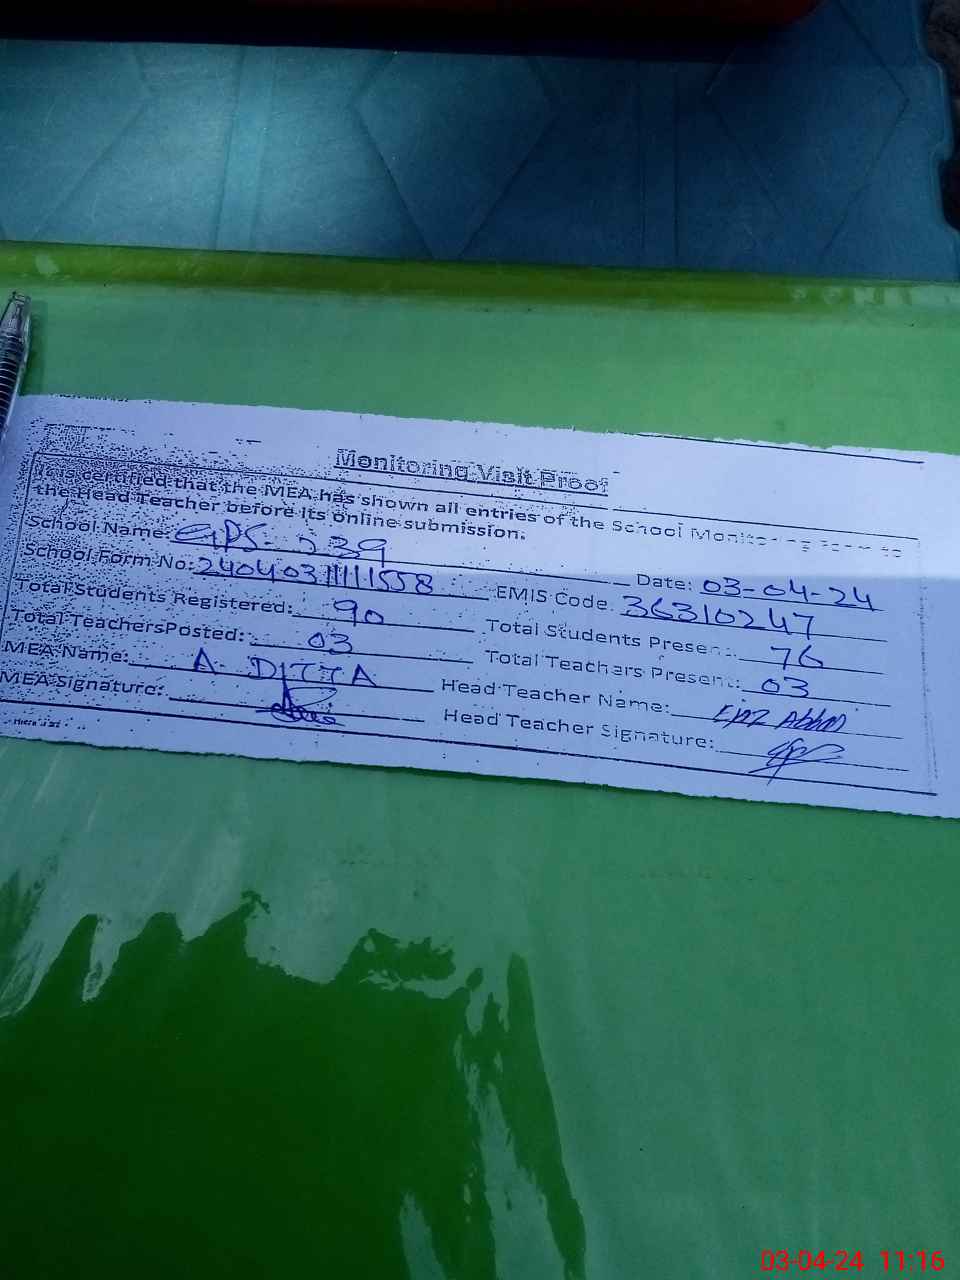 Monitoring Visit Proof
It is certified that the MEA has shown all entries of the School Monitoring Form to
the Head Teacher before its online submission.
School Name: GPS-239 Date: 03-04-24
School Form No: EMIS Code. 36310247
Total Students Registered: 90 Total Students Present: 76
Total TeachersPosted: 03 Total Teachers Present: 03
MEA Name: A. DITTA Head Teacher Name:
MEA Signature: Head Teacher Signature:
03-04-24 11:16